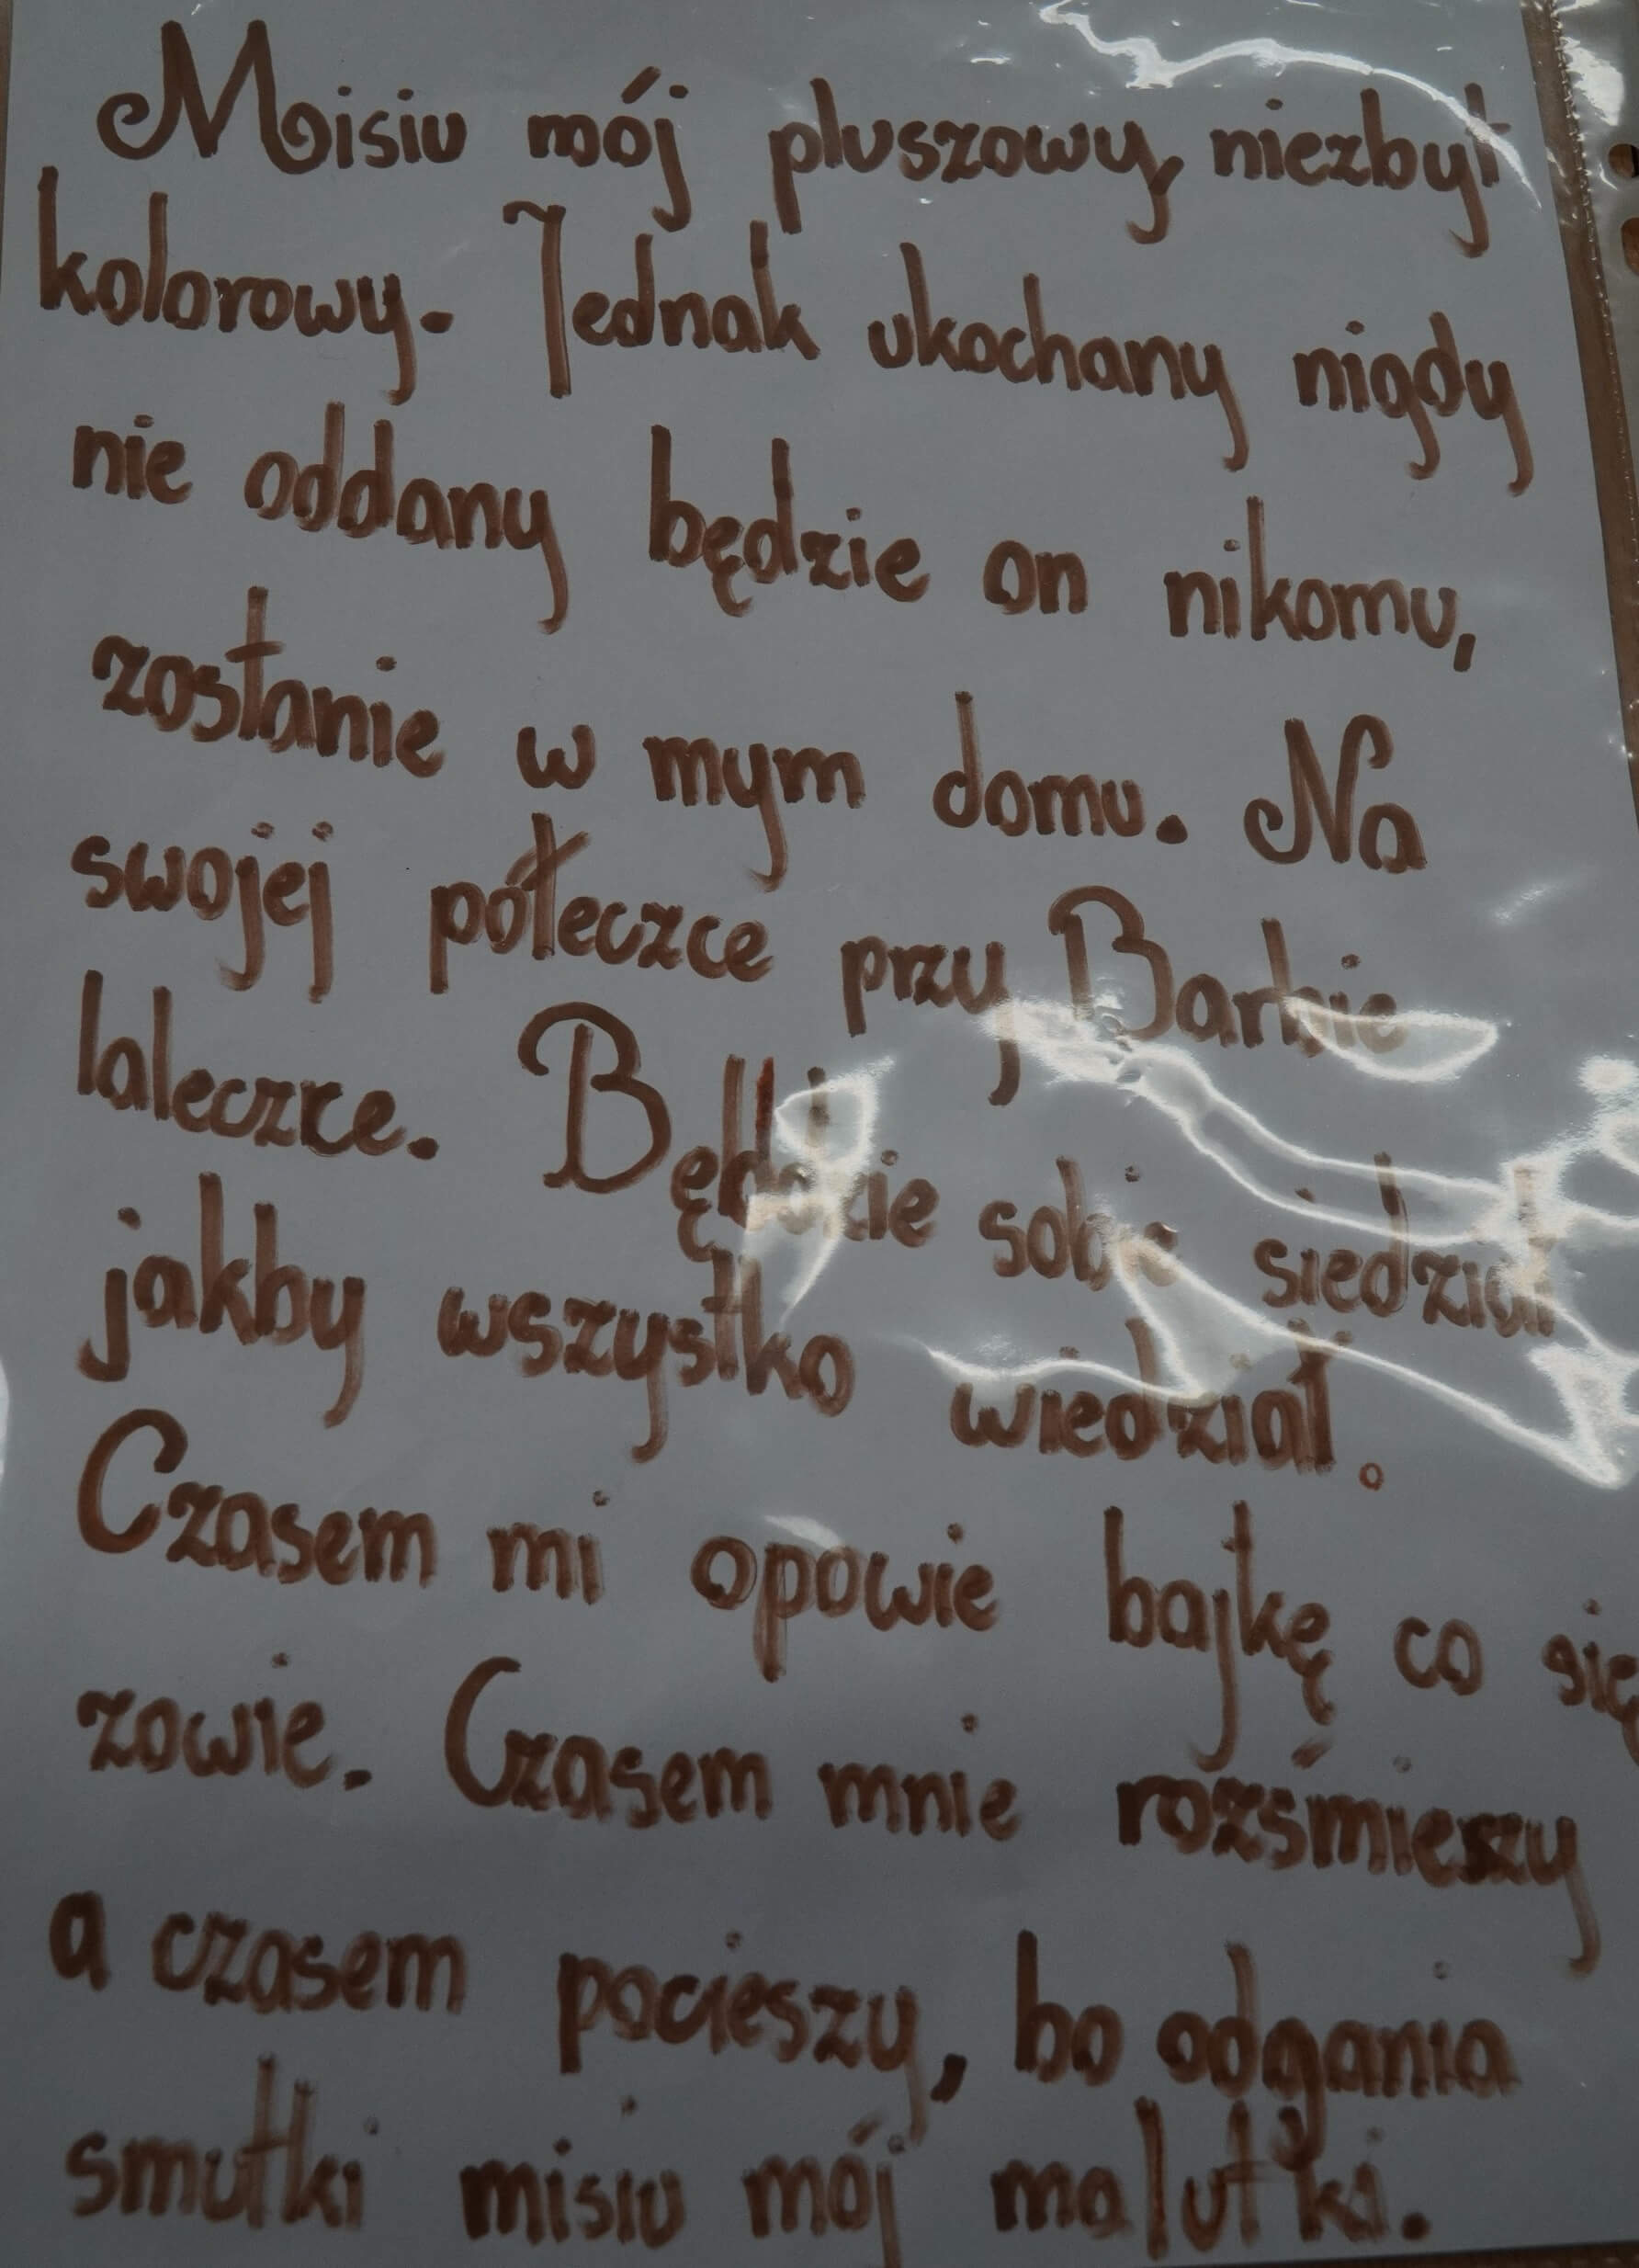 Moisiu mój pluszowy, niezbyt
kolorowy. Jednak ukochany nigdy
nie oddany będzie on nikomu,
zostanie w mym domu. Na
swojej półeczce przy Barbie
laleczce. Będzie sobie siedział
jakby wszystko wiedział.
Czasem mi opowie bajkę co się
zowie. Czasem mnie rozśmieszy
a czasem pocieszy, bo odgania
smutki misiu mój malutki.